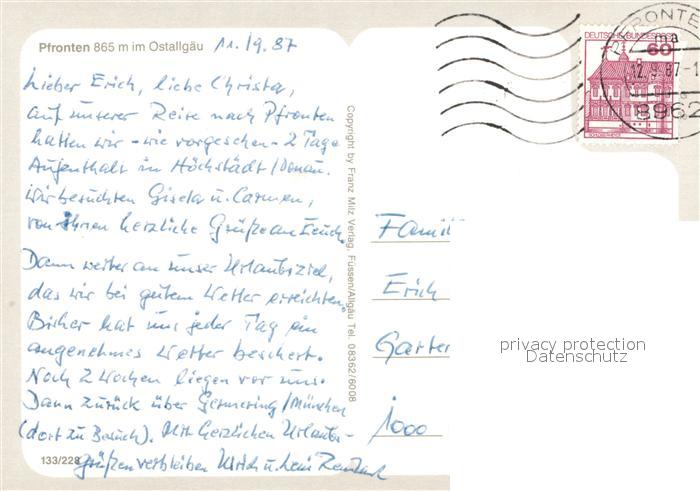 Pfronten 865 m im Ostallgäu
11./9.87
Lieber Erich, liebe Christa,
auf unserer Reise nach Pfronten
hatten wir - wie vorgesehen - 2 Tage
Aufenthalt in Höchstädt/Donau.
Wir besuchten Gisela u. Carmen,
von Ihnen herzliche Grüße an Euch.
Dann weiter an unser Urlaubsziel,
das wir bei gutem Wetter erreichten.
Bisher hat uns jeder Tag ein
angenehmes Wetter beschert.
Noch 2 Wochen liegen vor uns.
Dann zurück über Germering/München
(dort zu Besuch). Mit herzlichen Urlaubs-
grüßen verbleiben Ulrich u.
133/228
Copyright by Franz Milz Verlag, Füssen/Allgäu Tel. 08362/6008
DEUTSCHE BUNDESPOST
60
RONTE
12.9.87-1
8962
Famil
Erich
Garte
1000
privacy protection
Datenschutz